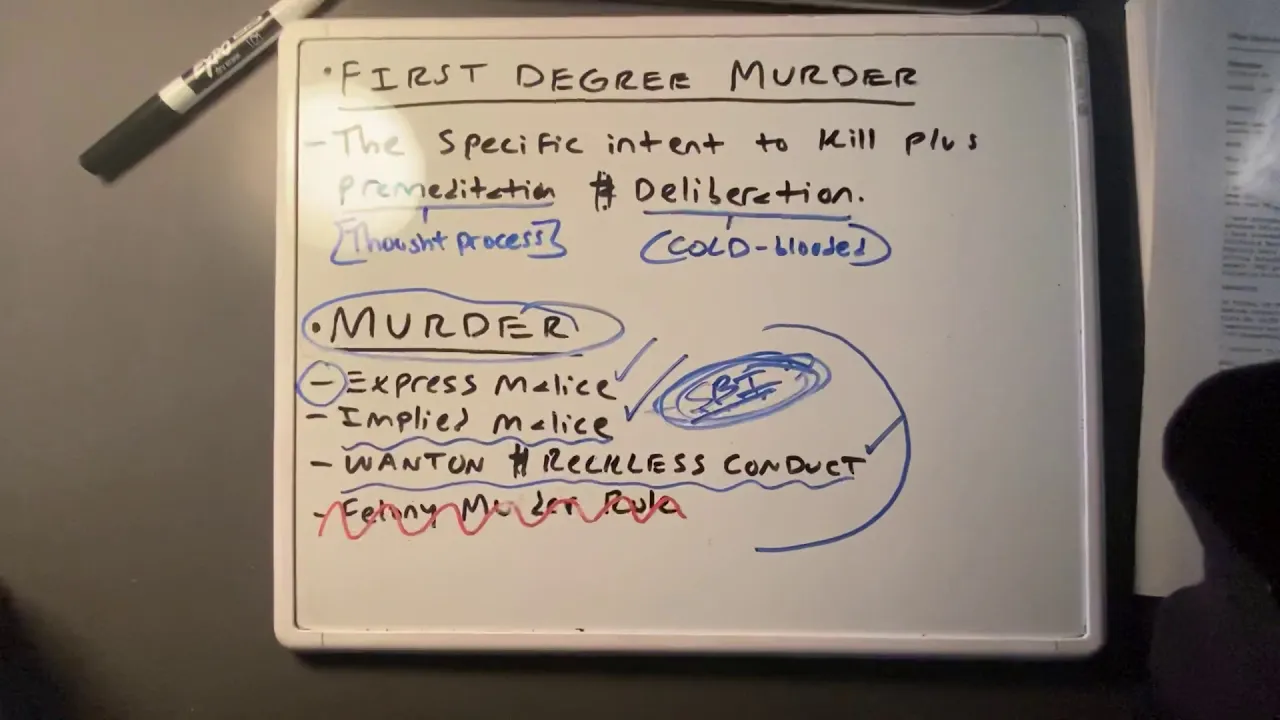 EXPO
• FIRST DEGREE MURDER
- The Specific intent to Kill plus
premeditation & Deliberation.
[Thought process] (COLD-blooded)
• MURDER
- Express Malice
SBI
- Implied Malice
- WANTON & RECKLESS CONDUCT
- Felony Murder Rule